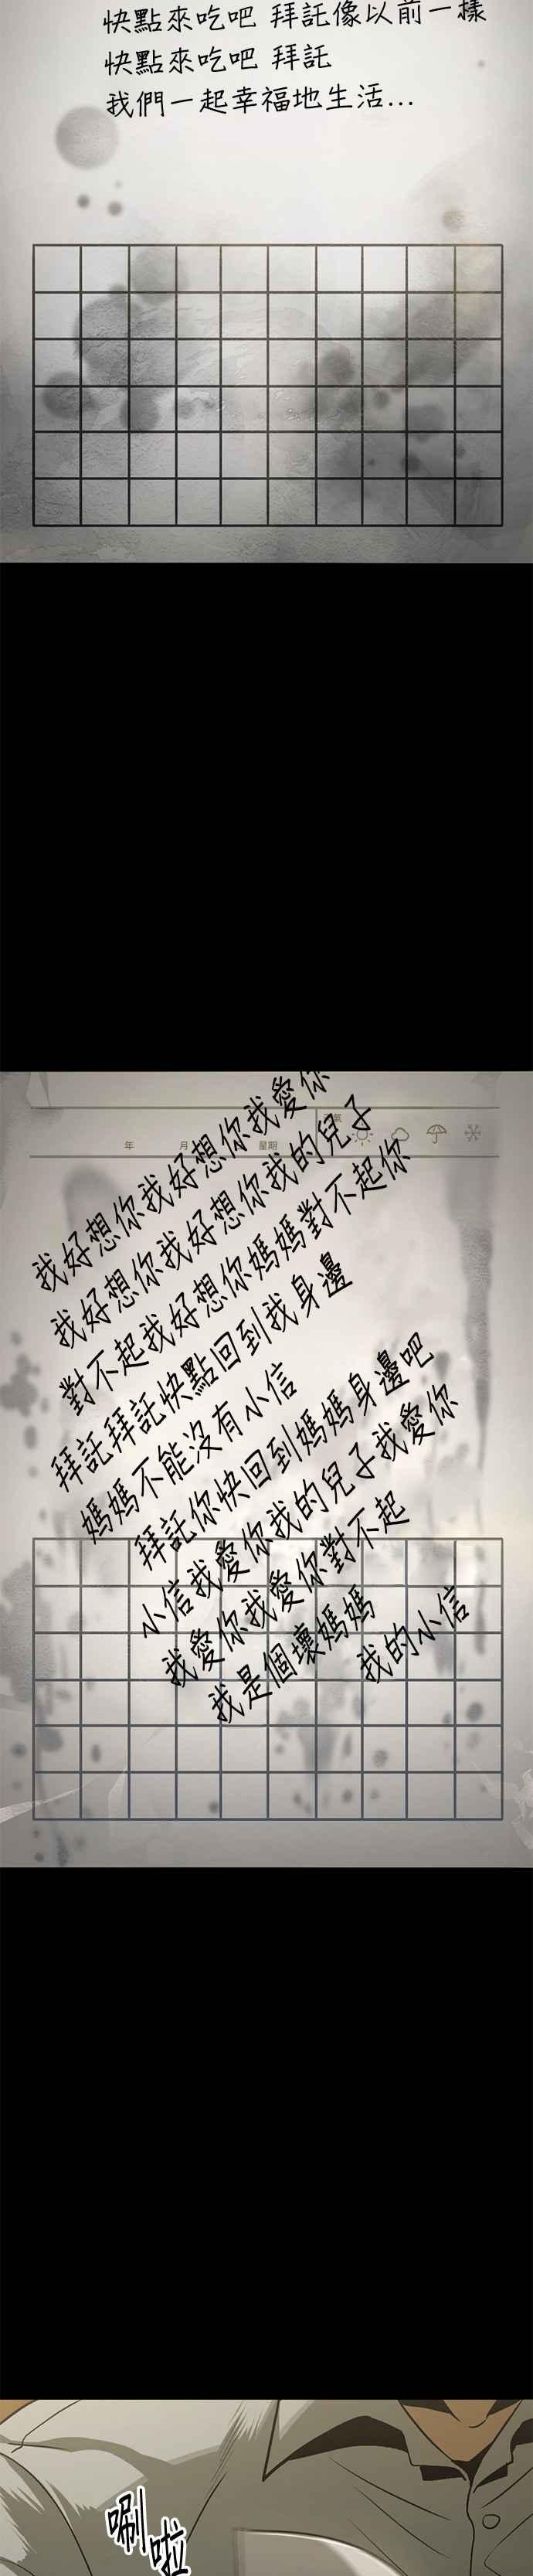 快點來吃吧 拜託像以前一樣
快點來吃吧 拜託
我們一起幸福地生活...
年 月 星期 天氣
我好想你我好想你我愛你
我好想你我好想你我的兒子
對不起我好想你媽媽對不起你
拜託拜託快點回到我身邊
媽媽不能沒有小信
拜託你快回到媽媽身邊吧
小信我愛你我的兒子我愛你
我愛你我愛你對不起
我是個壞媽媽 我的小信
唰啦